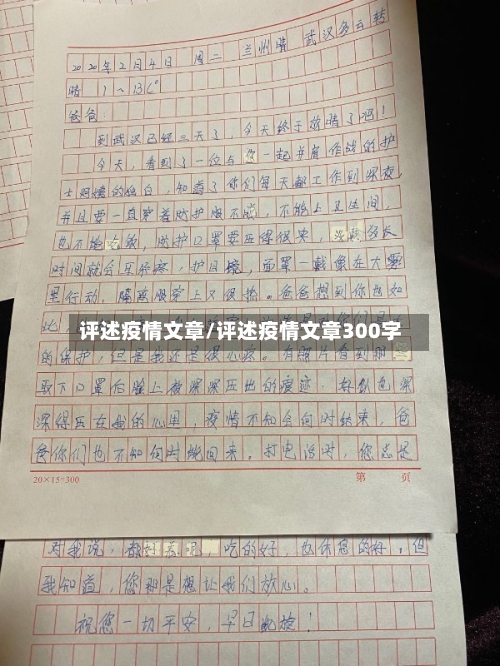 2020年2月4日 周二 兰州晴 武汉多云转
晴 1~13℃
爸爸:
到武汉已经三天了,今天终于放晴了吧!
今天,看到了一位与您一起并肩作战的护
士阿姨的独白,知道了你们每天都工作到深夜,
并且要一直穿着防护服不脱,不能上卫生间,
也不能吃饭,防护口罩要压得很紧,
时间就会耳朵疼,护目镜,面罩一戴像在大雾
里行动,隔离服穿上又很热。爸爸想到你也如
此,
评述疫情文章/评述疫情文章300字
的保护,但是我还是很心疼。有照片看到
取下口罩后脸上被深深压出的痕迹,好似也深
深得压在我的心里,疫情不知会何时结束,爸
爸你们也不知何时能回来,打电话时,您总是
20×15=300
第 页
对我说,都好着呢,吃的好,也休息的好,但
我知道,您那是想让我们放心。
祝您一切平安,早日凯旋!